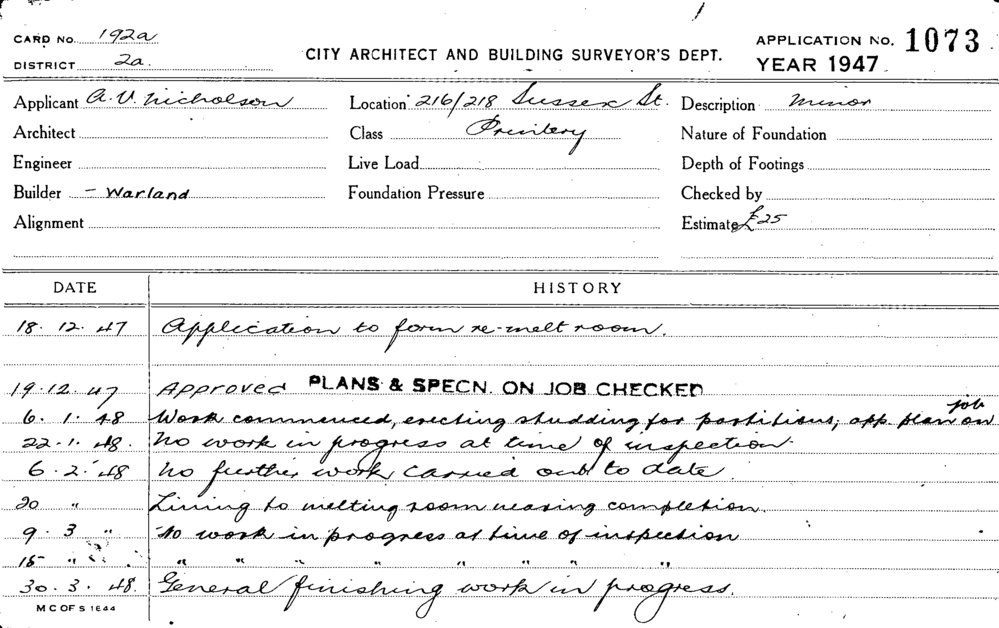 CARD No. 192a
DISTRICT 2a.
CITY ARCHITECT AND BUILDING SURVEYOR'S DEPT.
APPLICATION No. 1073
YEAR 1947
Applicant A. V. Nicholson Location 216/218 Sussex St. Description Minor
Architect Class Printery Nature of Foundation
Engineer Live Load Depth of Footings
Builder - Warland Foundation Pressure Checked by
Alignment Estimate £25
DATE HISTORY
18. 12. 47 Application to form re-melt room.
19. 12. 47 Approved PLANS & SPECN. ON JOB CHECKED
6. 1. 48 Work commenced, erecting studding for partitions, app. plan on job
22. 1. 48. No work in progress at time of inspection.
6. 2. 48 No further work carried out to date.
20 " Lining to melting room nearing completion.
9. 3 " No work in progress at time of inspection
15 " " " " " " " " "
30. 3. 48. General finishing work in progress.
M C OF S 1644